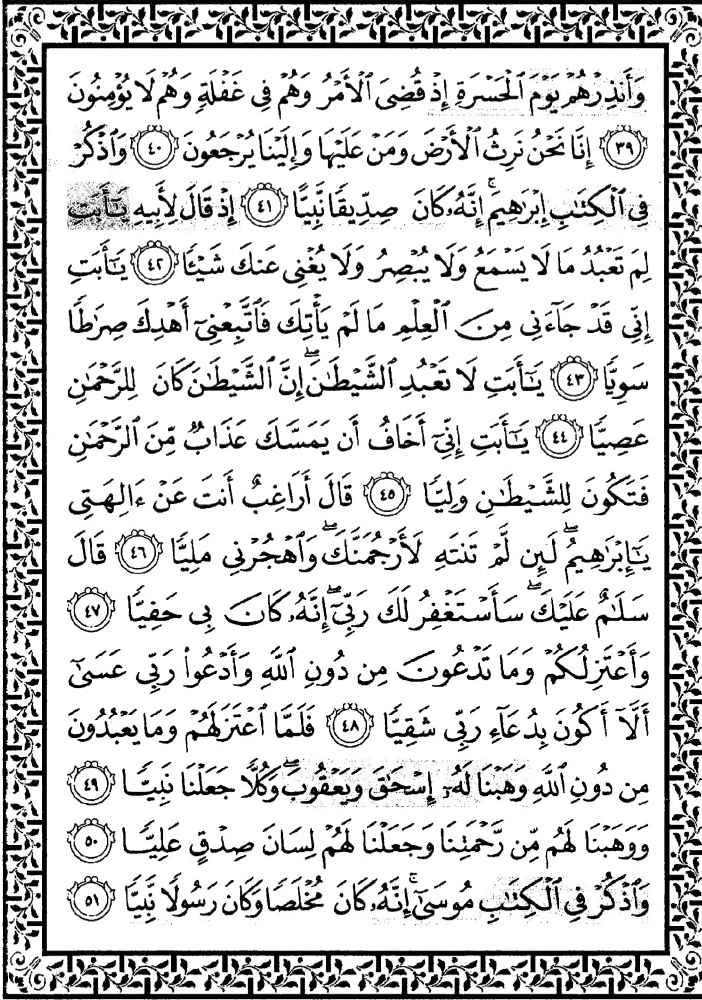 وَأَنذِرْهُمْ يَوْمَ ٱلْحَسْرَةِ إِذْ قُضِىَ ٱلْأَمْرُ وَهُمْ فِى غَفْلَةٍ وَهُمْ لَا يُؤْمِنُونَ
٣٩ إِنَّا نَحْنُ نَرِثُ ٱلْأَرْضَ وَمَنْ عَلَيْهَا وَإِلَيْنَا يُرْجَعُونَ ٤٠ وَٱذْكُرْ
فِى ٱلْكِتَٰبِ إِبْرَٰهِيمَ ۚ إِنَّهُۥ كَانَ صِدِّيقًا نَّبِيًّا ٤١ إِذْ قَالَ لِأَبِيهِ يَٰٓأَبَتِ
لِمَ تَعْبُدُ مَا لَا يَسْمَعُ وَلَا يُبْصِرُ وَلَا يُغْنِى عَنكَ شَيْـًٔا ٤٢ يَٰٓأَبَتِ
إِنِّى قَدْ جَآءَنِى مِنَ ٱلْعِلْمِ مَا لَمْ يَأْتِكَ فَٱتَّبِعْنِىٓ أَهْدِكَ صِرَٰطًا
سَوِيًّا ٤٣ يَٰٓأَبَتِ لَا تَعْبُدِ ٱلشَّيْطَٰنَ ۖ إِنَّ ٱلشَّيْطَٰنَ كَانَ لِلرَّحْمَٰنِ
عَصِيًّا ٤٤ يَٰٓأَبَتِ إِنِّىٓ أَخَافُ أَن يَمَسَّكَ عَذَابٌ مِّنَ ٱلرَّحْمَٰنِ
فَتَكُونَ لِلشَّيْطَٰنِ وَلِيًّا ٤٥ قَالَ أَرَاغِبٌ أَنتَ عَنْ ءَالِهَتِى
يَٰٓإِبْرَٰهِيمُ ۖ لَئِن لَّمْ تَنتَهِ لَأَرْجُمَنَّكَ ۖ وَٱهْجُرْنِى مَلِيًّا ٤٦ قَالَ
سَلَٰمٌ عَلَيْكَ ۖ سَأَسْتَغْفِرُ لَكَ رَبِّىٓ ۖ إِنَّهُۥ كَانَ بِى حَفِيًّا ٤٧
وَأَعْتَزِلُكُمْ وَمَا تَدْعُونَ مِن دُونِ ٱللَّهِ وَأَدْعُوا۟ رَبِّى عَسَىٰٓ
أَلَّآ أَكُونَ بِدُعَآءِ رَبِّى شَقِيًّا ٤٨ فَلَمَّا ٱعْتَزَلَهُمْ وَمَا يَعْبُدُونَ
مِن دُونِ ٱللَّهِ وَهَبْنَا لَهُۥٓ إِسْحَٰقَ وَيَعْقُوبَ ۖ وَكُلًّا جَعَلْنَا نَبِيًّا ٤٩
وَوَهَبْنَا لَهُم مِّن رَّحْمَتِنَا وَجَعَلْنَا لَهُمْ لِسَانَ صِدْقٍ عَلِيًّا ٥٠
وَٱذْكُرْ فِى ٱلْكِتَٰبِ مُوسَىٰٓ ۚ إِنَّهُۥ كَانَ مُخْلَصًا وَكَانَ رَسُولًا نَّبِيًّا ٥١